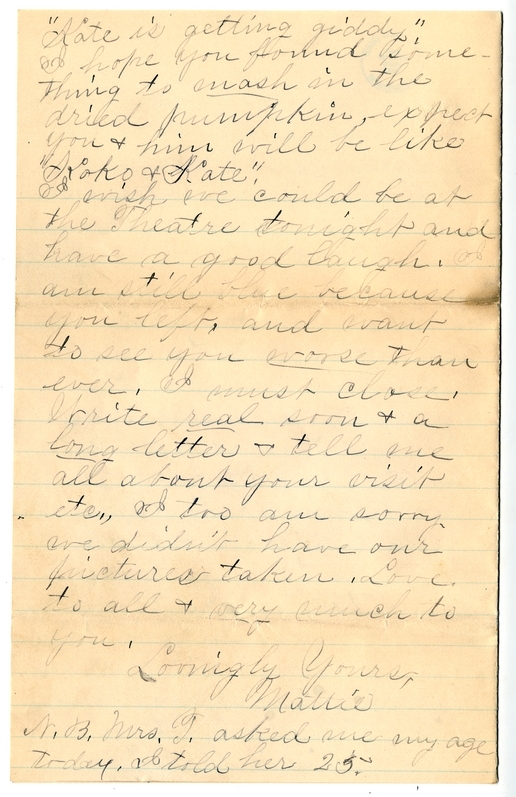 "Kate is getting giddy"
I hope you found some-
thing to mash in the
dried pumpkin, expect
you & him will be like
"Koko & Kate".
I wish we could be at
the Theatre tonight and
have a good laugh. I
am still blue because
you left, and want
to see you worse than
ever. I must close.
Write real soon & a
long letter & tell me
all about your visit
etc., I too am sorry
we didn't have our
pictures taken. Love
to all & very much to
you.
Lovingly Yours,
Mattie
N.B. Mrs. T. asked me my age
today. I told her 25.